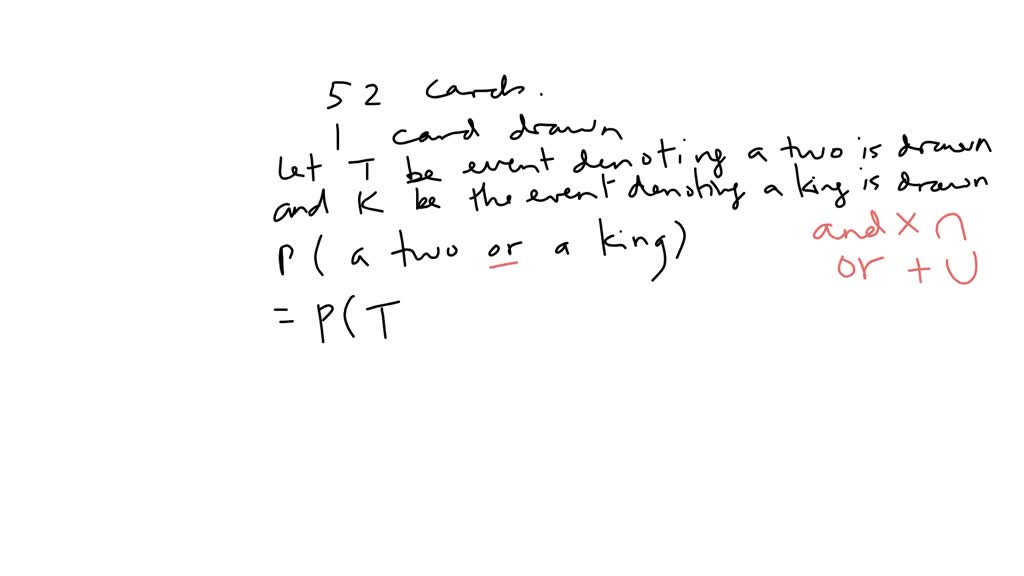 52 cards.
1 card drawn
Let T be event denoting a two is drawn
and K be the event denoting a king is drawn
P ( a two or a king)
and × ∩
or + ∪
= P(T